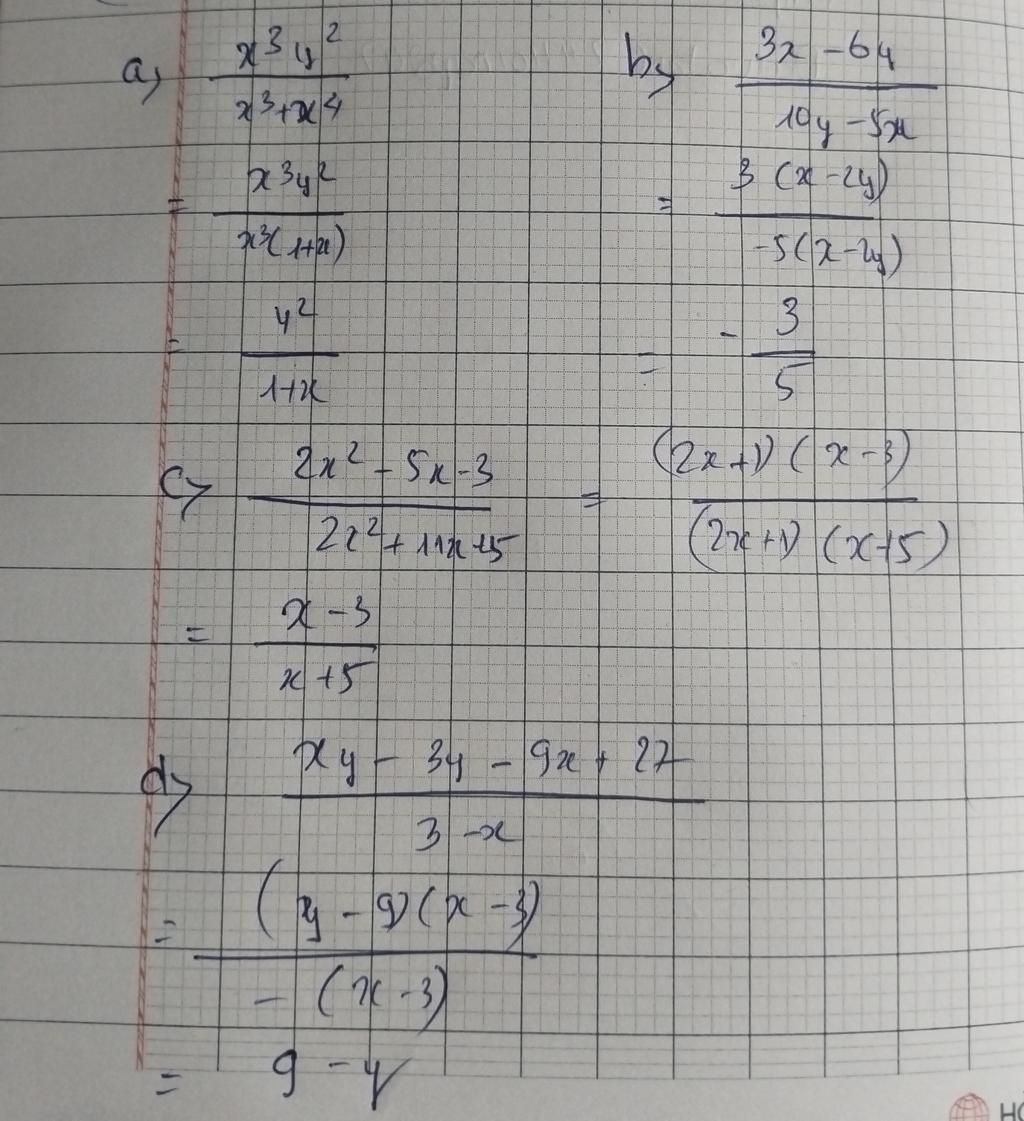 a) x³y² / x³+x⁴
= x³y² / x³(1+x)
= y² / 1+x
b) 3x - 6y / 10y - 5x
= 3 (x - 2y) / -5(x - 2y)
= - 3 / 5
c) 2x² - 5x - 3 / 2x² + 11x + 5 = (2x+1) (x - 3) / (2x+1) (x+5)
= x - 3 / x + 5
d) xy - 3y - 9x + 27 / 3 - x
= (y - 9) (x - 3) / - (x - 3)
= 9 - y